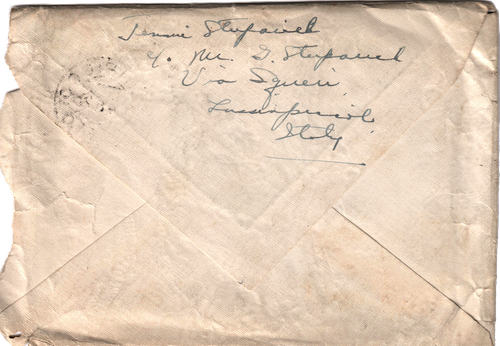 Jennie Stuparich
℅ Mr. G. Stuparich
Via Squeri
Lussinpiccolo
Italy